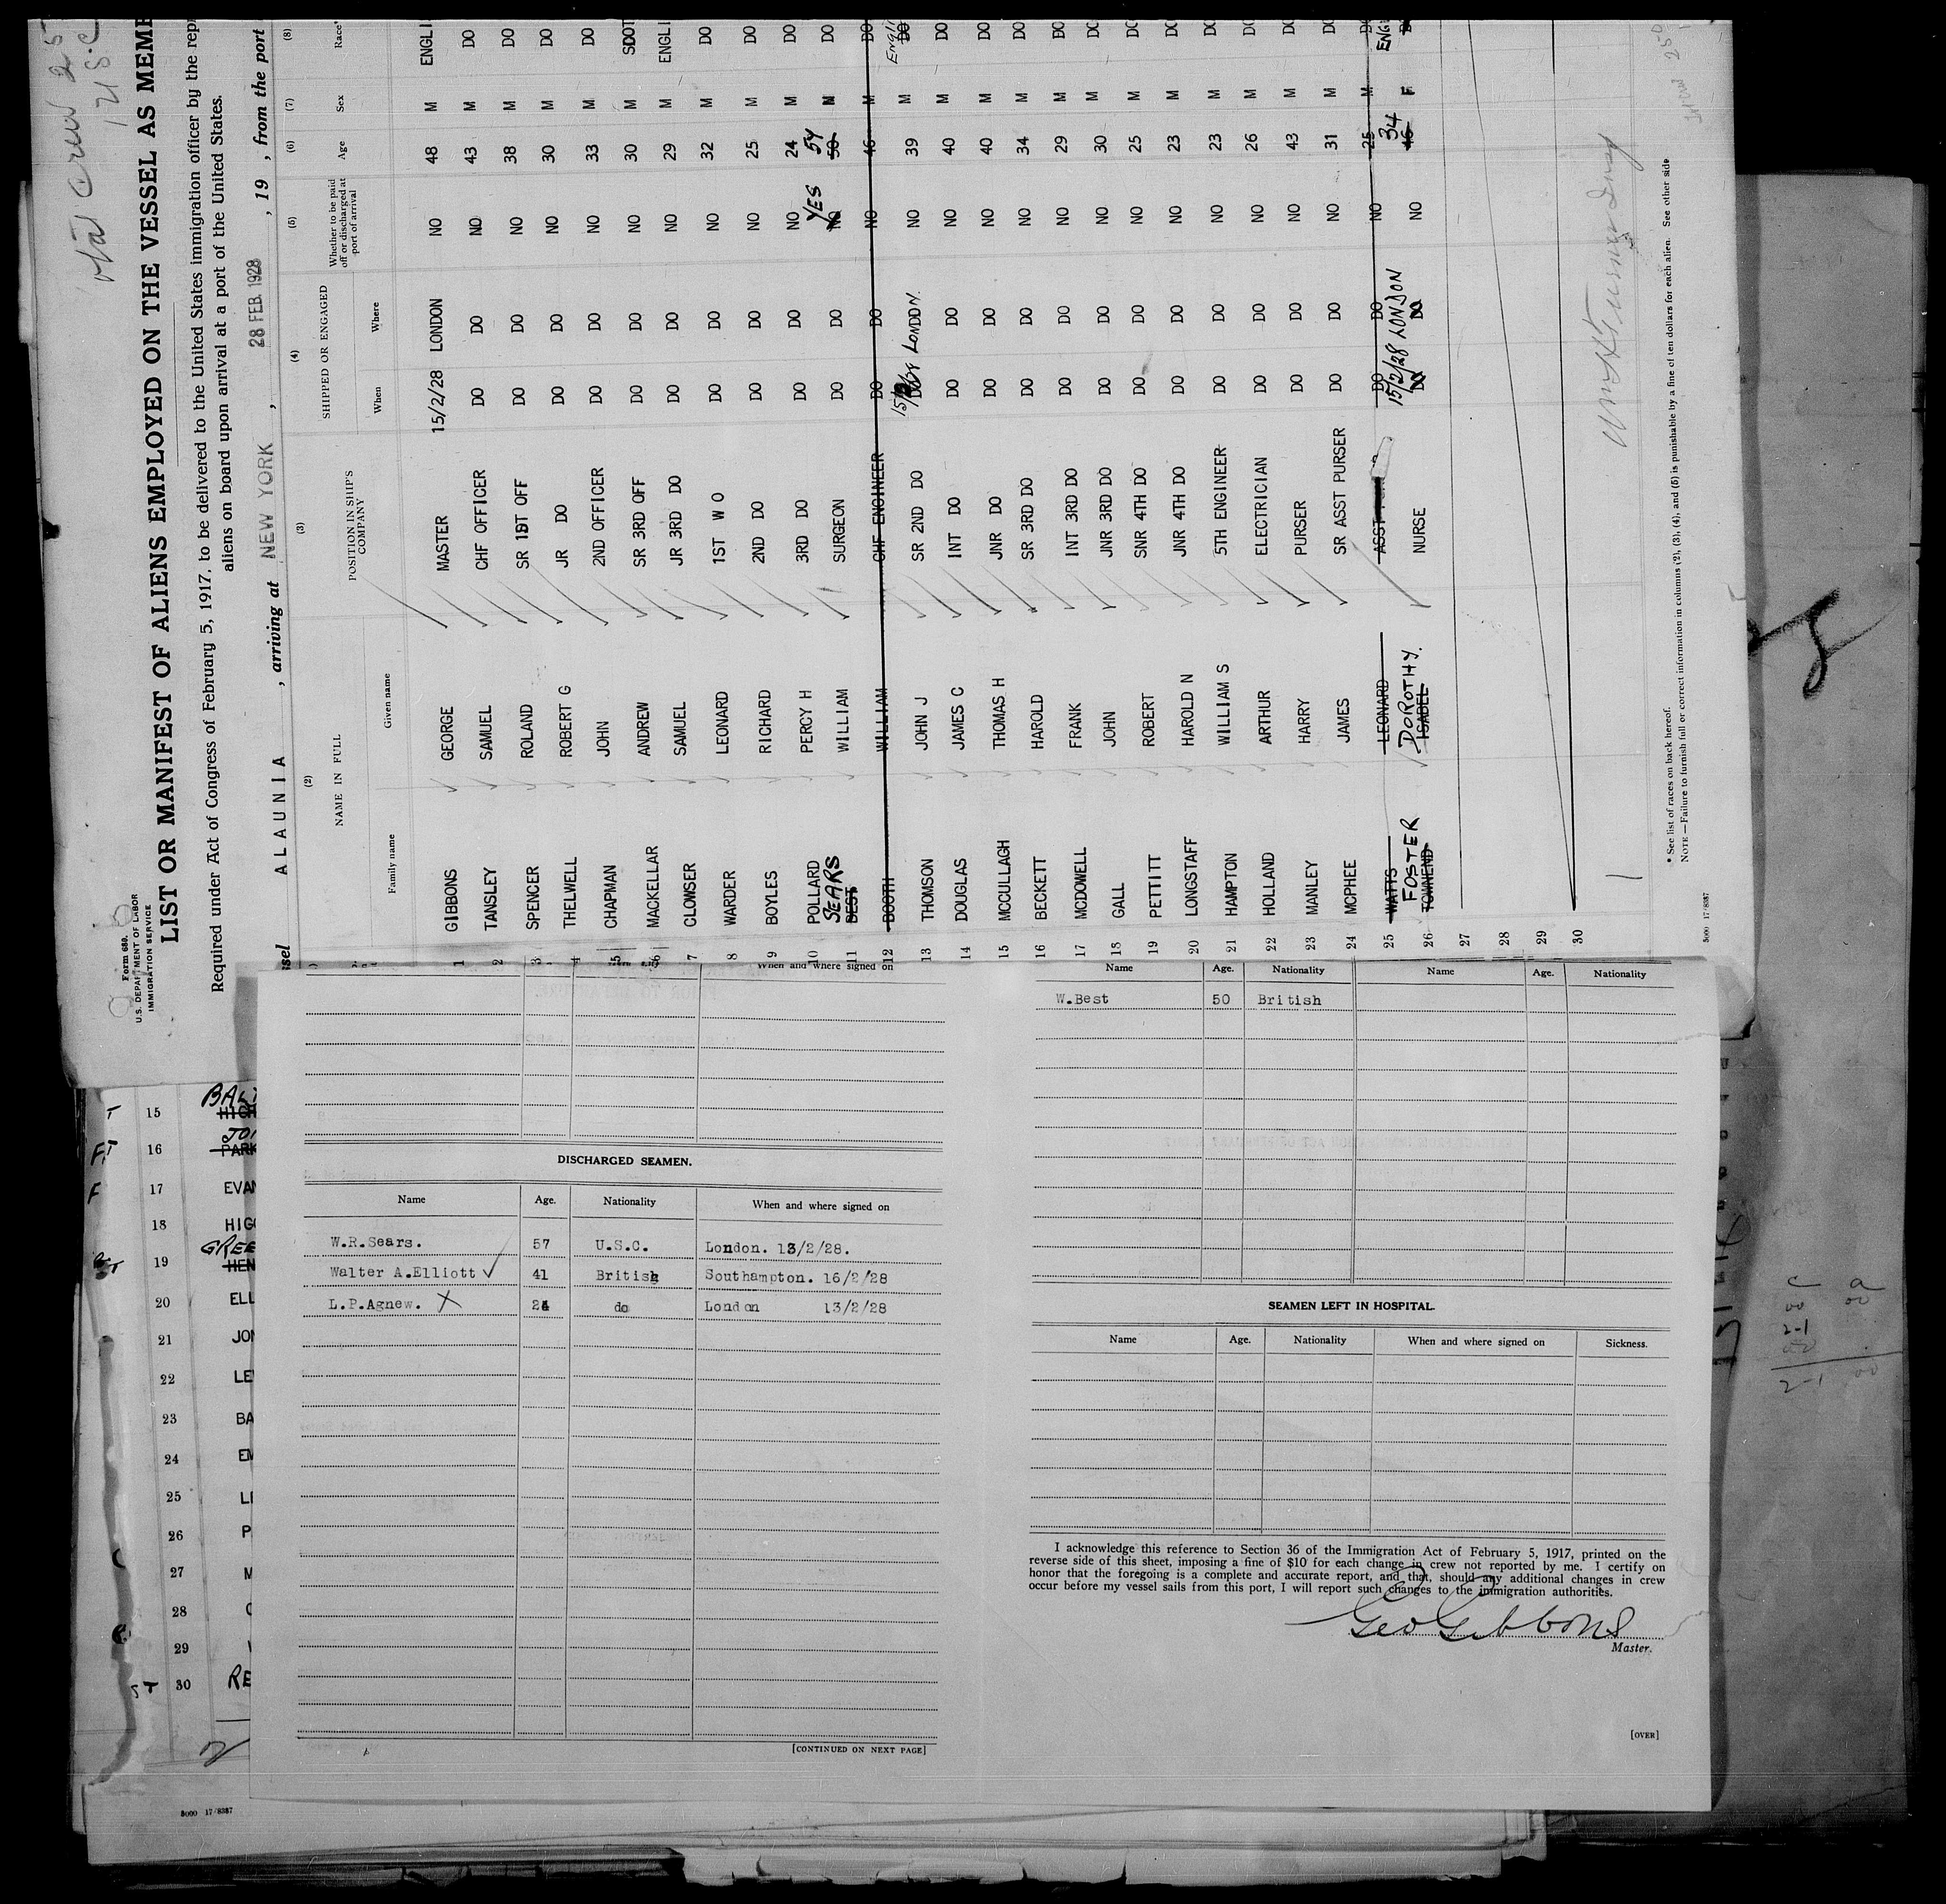 Total Crew 25
1 U.S.C
Form 680.
U.S. DEPARTMENT OF LABOR
IMMIGRATION SERVICE
LIST OR MANIFEST OF ALIENS EMPLOYED ON THE VESSEL AS MEME
Required under Act of Congress of February 5, 1917, to be delivered to the United States immigration officer by the rep
aliens on board upon arrival at a port of the United States.
ssel ALAUNIA , arriving at NEW YORK , 28 FEB. 1928 , 19 , from the port
(2) (3) (4) (5) (6) (7) (8)
NAME IN FULL POSITION IN SHIP'S COMPANY SHIPPED OR ENGAGED Whether to be paid off or discharged at port of arrival Age Sex Race*
Family name Given name When Where
1 GIBBONS GEORGE MASTER 15/2/28 LONDON NO 48 M ENGLI
2 TANSLEY SAMUEL CHF OFFICER DO DO NO 43 M DO
3 SPENCER ROLAND SR 1ST OFF DO DO NO 38 M DO
4 THELWELL ROBERT G JR DO DO DO NO 30 M DO
5 CHAPMAN JOHN 2ND OFFICER DO DO NO 33 M DO
6 MACKELLAR ANDREW SR 3RD OFF DO DO NO 30 M SCOT
7 CLOWSER SAMUEL JR 3RD DO DO DO NO 29 M ENGLI
8 WARDER LEONARD 1ST W O DO DO NO 32 M DO
9 BOYLES RICHARD 2ND DO DO DO NO 25 M DO
10 POLLARD PERCY H 3RD DO DO DO NO 24 M DO
SEARS YES 57
11 BEST WILLIAM SURGEON DO DO NO 50 M DO
12 BOOTH WILLIAM CHF ENGINEER DO DO NO 46 M DO
LONDON. Engli
13 THOMSON JOHN J SR 2ND DO NO 39 M DO
14 DOUGLAS JAMES C INT DO DO DO NO 40 M DO
15 MCCULLAGH THOMAS H JNR DO DO DO NO 40 M DO
16 BECKETT HAROLD SR 3RD DO DO DO NO 34 M DO
17 MCDOWELL FRANK INT 3RD DO DO DO NO 29 M DO
18 GALL JOHN JNR 3RD DO DO DO NO 30 M DO
19 PETTITT ROBERT SNR 4TH DO DO DO NO 25 M DO
20 LONGSTAFF HAROLD N JNR 4TH DO DO DO NO 23 M DO
21 HAMPTON WILLIAM S 5TH ENGINEER DO DO NO 23 M DO
22 HOLLAND ARTHUR ELECTRICIAN DO DO NO 26 M DO
23 MANLEY HARRY PURSER DO DO NO 43 M DO
24 MCPHEE JAMES SR ASST PURSER DO DO NO 31 M DO
25 WATTS LEONARD ASST DO DO NO 25 M DO
FOSTER DOROTHY. 15/2/28 LONDON 34 ENG
26 TOWNEND ISABEL NURSE DO DO NO 46 F DO
27
28
29
30
* See list of races on back hereof.
NOTE — Failure to furnish full or correct information in columns (2), (3), (4), and (5) is punishable by a fine of ten dollars for each alien. See other side.
5000 17/8387
When and where signed on
DISCHARGED SEAMEN.
Name Age. Nationality When and where signed on
W.R.Sears. 57 U.S.C. London. 13/2/28.
Walter A.Elliott 41 British Southampton. 16/2/28
L.P.Agnew. 24 do London 13/2/28
[CONTINUED ON NEXT PAGE]
Name Age. Nationality Name Age. Nationality
W.Best 50 British
SEAMEN LEFT IN HOSPITAL.
Name Age. Nationality When and where signed on Sickness.
I acknowledge this reference to Section 36 of the Immigration Act of February 5, 1917, printed on the
reverse side of this sheet, imposing a fine of $10 for each change in crew not reported by me. I certify on
honor that the foregoing is a complete and accurate report, and that, should any additional changes in crew
occur before my vessel sails from this port, I will report such changes to the immigration authorities.
Geo Gibbons
Master.
[OVER]
T 15 BAL
16 JO
PARK
F 17 EVAN
18 HIGG
19 GREE
HEN
20 ELL
21 JON
22 LE
23 BA
24 EM
25 LI
26 P
27 M
28
29
30 RE
2
5000 17/8387